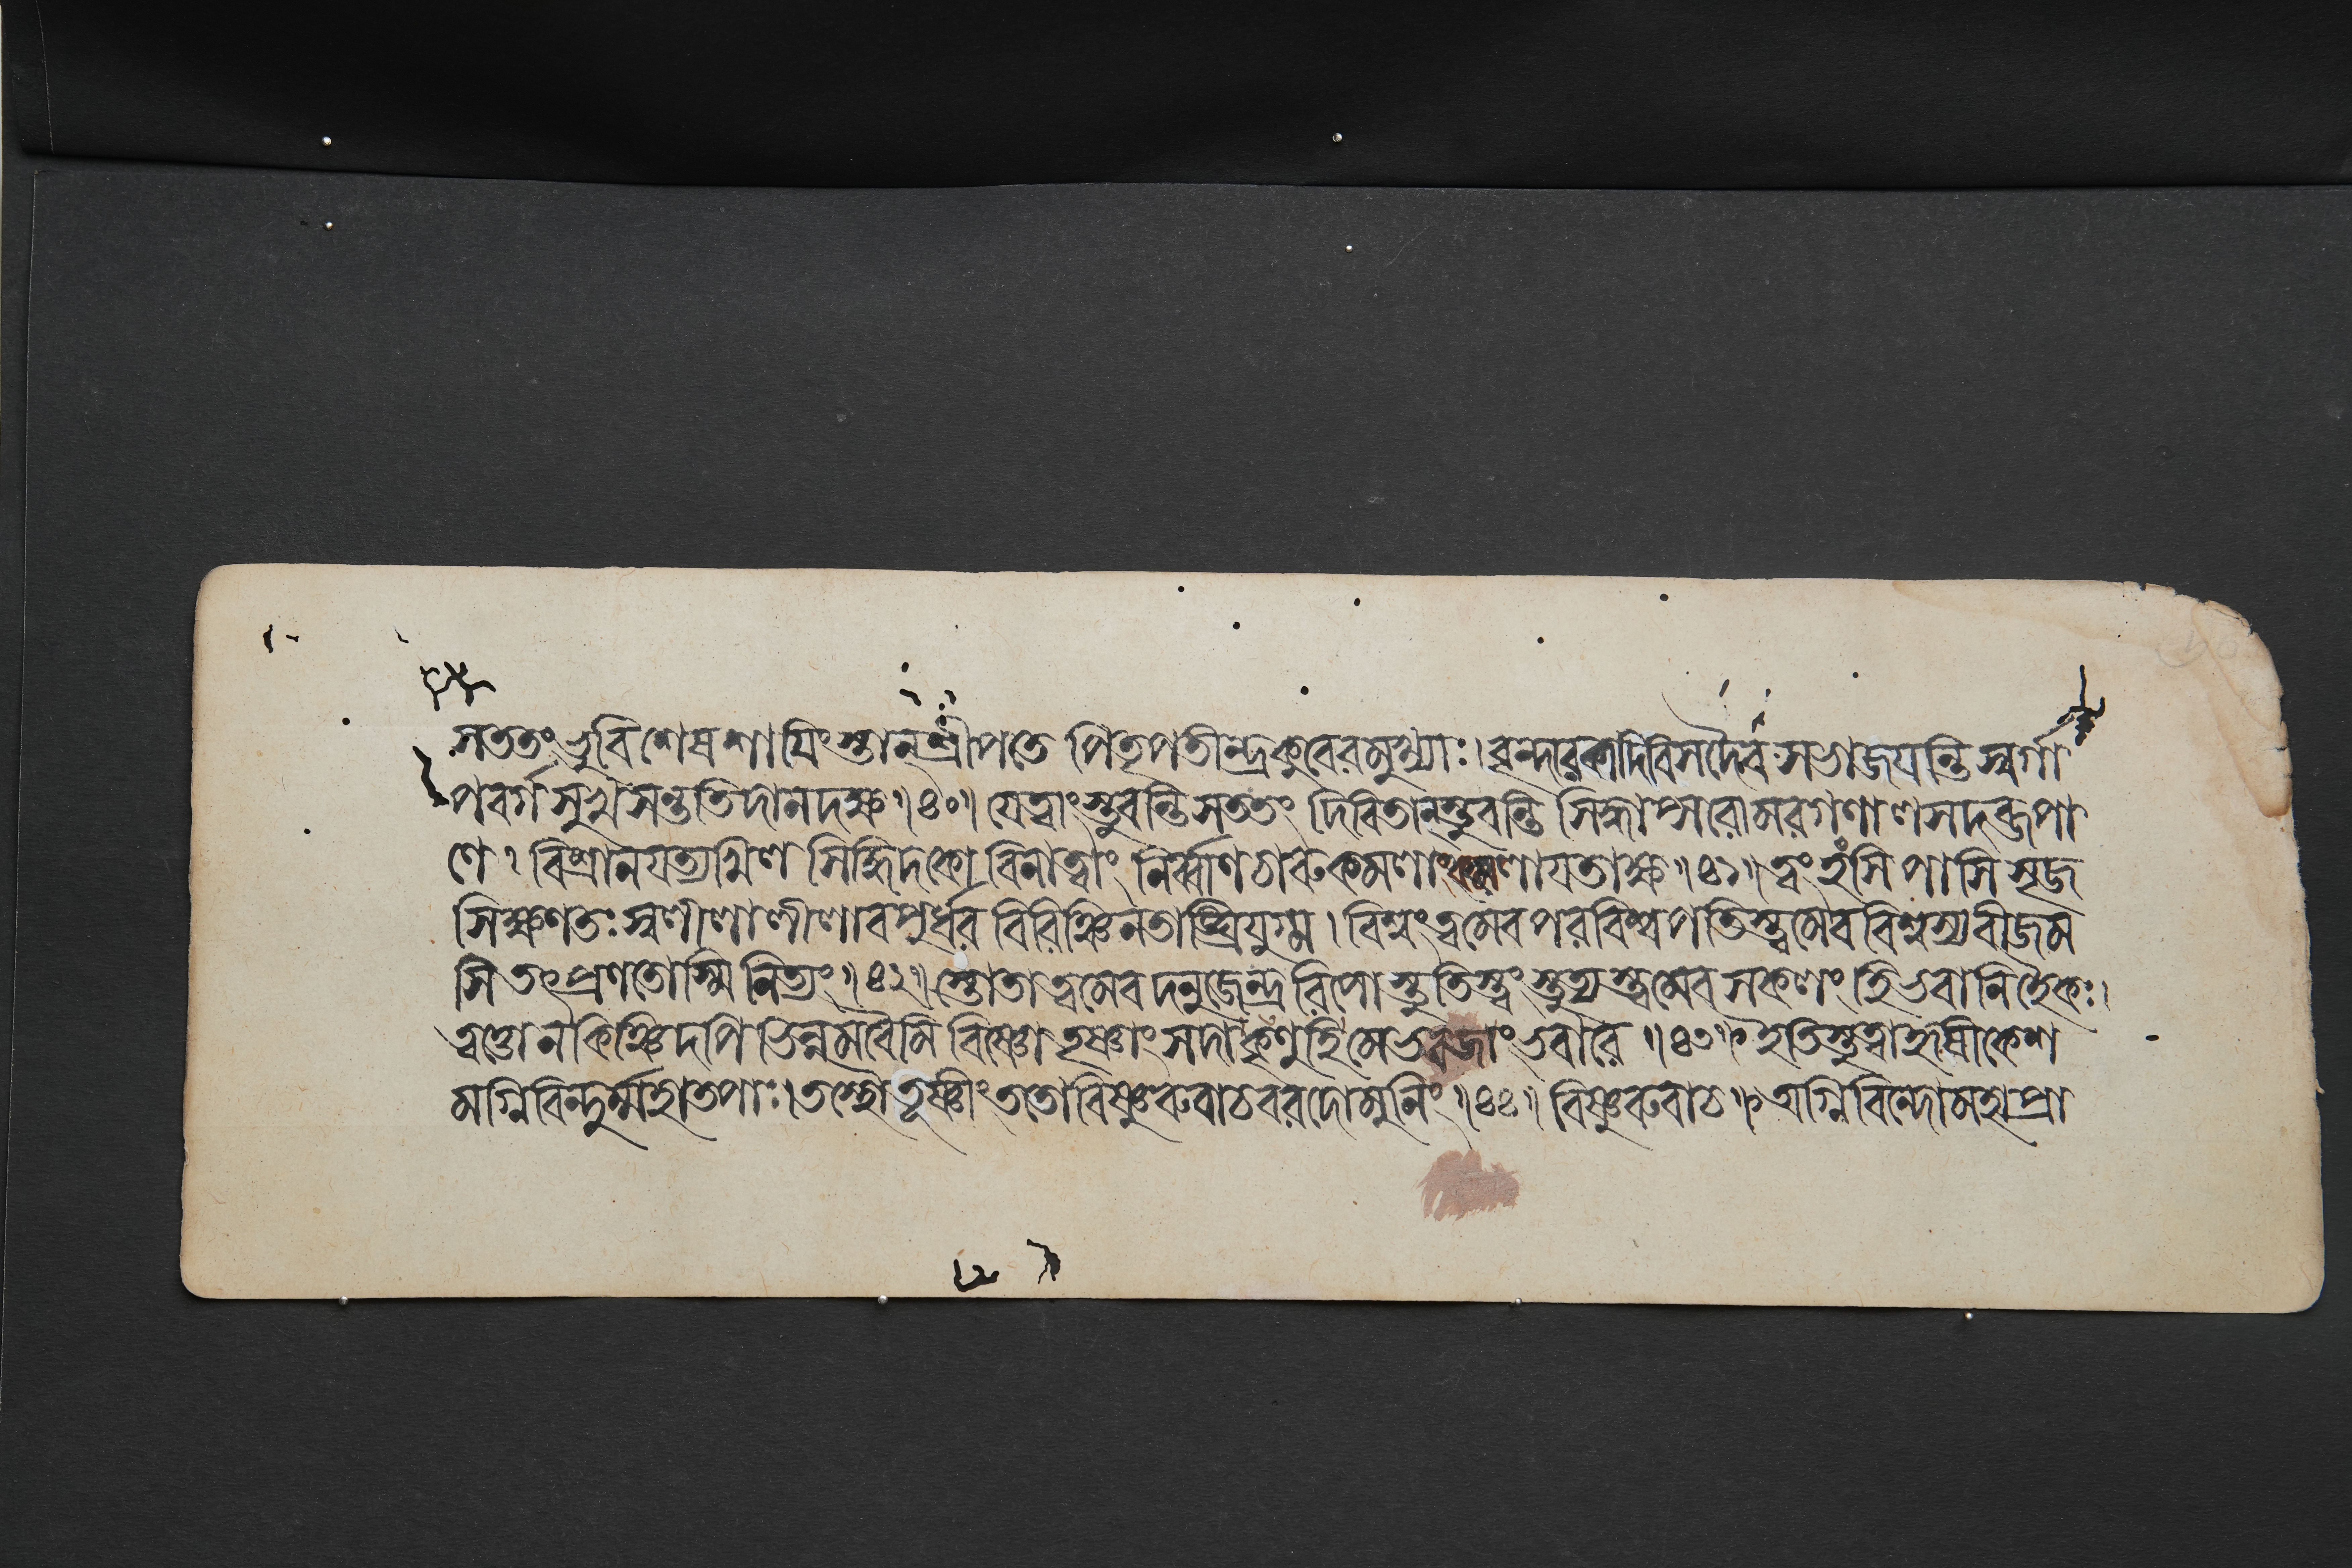 সততং ভুবি শেষশায়িংস্তান্ শ্রীপতে পিতৃপতীন্দ্রকুবেরমুখ্যাঃ । বৃন্দারকাদিবিসদৈব সভাজযন্তি স্বর্গা
পবর্গসুখসন্ততিদানদক্ষ ॥৪০॥ যেত্বাং স্তুবন্তি সততং দিবিতান্স্তুবন্তি সিদ্ধাপ্সরোমরগণালসদব্জপা
ণে । বিশ্রানযত্যখিল সিদ্ধিদকো বিনাত্বাং নির্ব্বাণচারুকমলাংকমলাযতাক্ষ ॥৪১॥ ত্বং হংসি পাসি সৃজ
সিক্ষণতঃ স্বলীলালীলাবপুর্ধর বিরিঞ্চিনতাঙ্ঘ্রিযুগ্ম । বিশ্বংত্বমেবপরবিশ্বপতিস্ত্বমেব বিশ্বস্যবীজম
সি তৎপ্রণতোস্মি নিত্যং ॥৪২॥ স্তোতাত্বমেব দনুজেন্দ্র রিপো স্তুতিস্ত্বং স্তুত্যস্ত্বমেব সকলং হি ভবানিহৈকঃ ।
ত্বত্তো ন কিঞ্চিদপি ভিন্নমবৈমি বিষ্ণো তৃষ্ণাং সদা কৃণুহি মে ভবজাং ভবারে ॥৪৩॥ ইতিস্তুত্বাহৃষীকেশ
মগ্নিবিন্দুর্ম্মহাতপাঃ । তস্থৌ তূষ্ণীং ততোবিষ্ণুরুবাচবরদোমুনিং ॥৪৪॥ বিষ্ণুরুবাচ ॥ অগ্নিবিন্দোমহাপ্রা